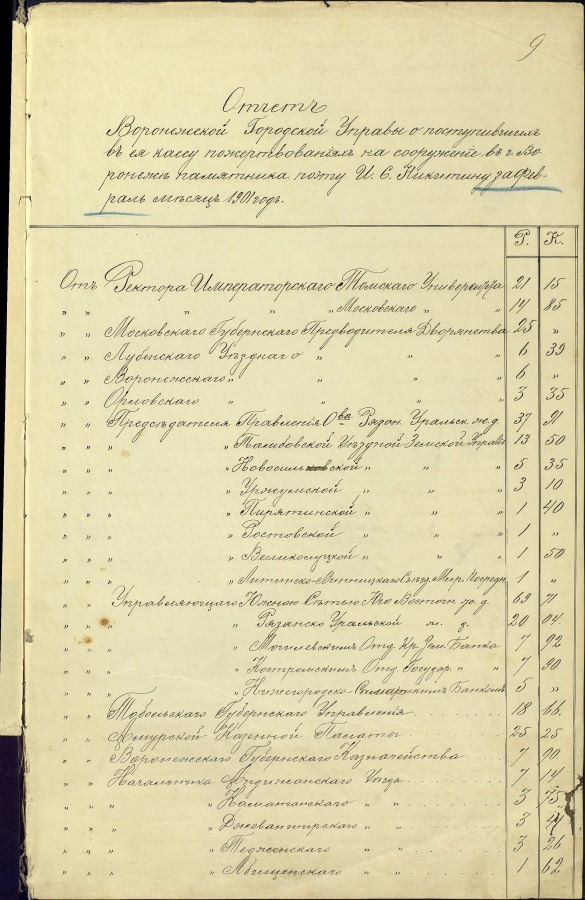 9
Отчетъ
Воронежской Городской Управы о поступившимъ
въ ея кассу пожертвованіямъ на сооруженіе въ г. Во-
ронежѣ памятника поэту И. С. Никитину за фев-
раль мѣсяцъ 1901 годъ.
Р. К.
Отъ Ректора Императорскаго Томскаго Университета 21 15
„ „ „ „ Московскаго „ 14 85
„ „ Московскаго Губернскаго Предводителя Дворянства 25 „
„ „ Лубенскаго Уѣзднаго „ „ 6 39
„ „ Воронежскаго „ „ „ 6 „
„ „ Орловскаго „ „ „ 3 35
„ „ Предсѣдателя Правленія О-ва Рязан. Уральск. ж. д. 37 91
„ „ „ „ Тамбовской Уѣздной Земской Управы 13 50
„ „ „ „ Новосильской „ „ „ 5 35
„ „ „ „ Уржумской „ „ „ 3 10
„ „ „ „ Пирятинской „ „ „ 1 40
„ „ „ „ Ростовской „ „ „ 1 „
„ „ „ „ Великолуцкой „ „ „ 1 50
„ „ „ „ Литинско-Винницкаго Съѣзд. Мир. Посредн. 1 „
„ „ Управляющаго Южною Сѣтью Юго Восточн. ж. д. 69 71
„ „ „ „ Рязанско Уральской ж. д. 20 04
„ „ „ „ Могилевскимъ Отд. Кр. Зем. Банка 7 92
„ „ „ „ Костромскимъ Отд. Госудор. „ „ 7 90
„ „ „ „ Нижегородско-Самарскимъ Банкомъ 5 „
„ „ Тобольскаго Губернскаго Управленія 18 66
„ „ Амурской Казенной Палаты 25 25
„ „ Воронежскаго Губернскаго Казначейства 7 90
„ „ Начальника Андижанскаго Уѣзда 7 14
„ „ „ „ Наманганскаго „ „ 3 75
„ „ „ „ Джеванширскаго „ „ 3 47
„ „ „ „ Тедженскаго „ „ 3 26
„ „ „ „ „ „ 1 62